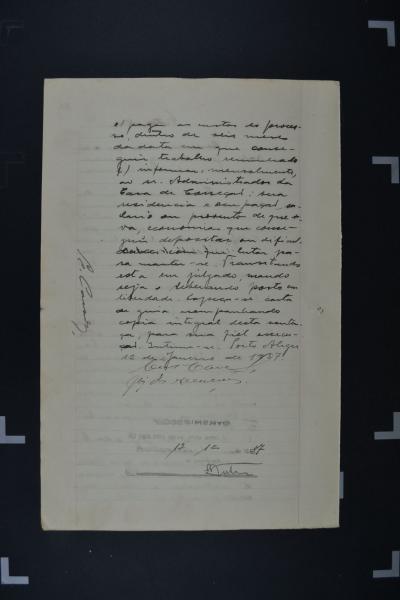 e) pagar as custas do proces-
so, dentro de seis meses
da data em que conse-
guir trabalho remunerado
f) informar, mensalmente,
ao sr. Administrador da
Casa de Correção, sua
residencia e occupação, sa-
lario ou provento de que vi-
va, economias que conse-
guiu depositar ou dificul-
dades com que lutar pa-
ra manter-se. Transitando
esta em julgado, mando
seja o liberando posto em
liberdade. Expeça-se carta
de guia acompanhando
copia integral desta senten-
ça, para sua fiel execu-
ção. Intime-se. Porto Alegre
12 de Janeiro de 1937.
12 37